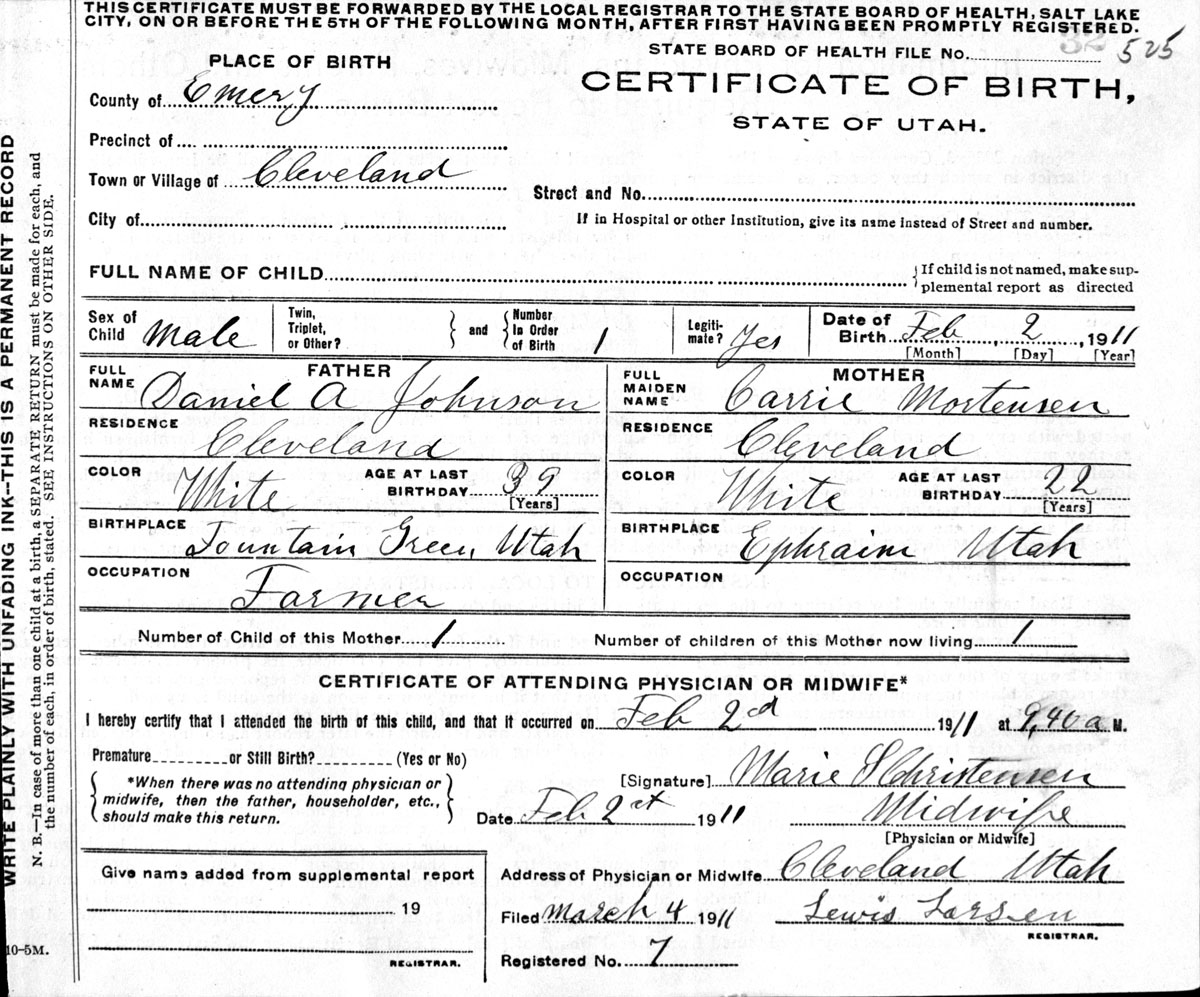 THIS CERTIFICATE MUST BE FORWARDED BY THE LOCAL REGISTRAR TO THE STATE BOARD OF HEALTH, SALT LAKE
CITY, ON OR BEFORE THE 5TH OF THE FOLLOWING MONTH, AFTER FIRST HAVING BEEN PROMPTLY REGISTERED.
STATE BOARD OF HEALTH FILE No. 32 525
PLACE OF BIRTH
CERTIFICATE OF BIRTH,
STATE OF UTAH.
County of Emery
Precinct of
Town or Village of Cleveland
Street and No.
City of
If in Hospital or other Institution, give its name Instead of Street and number.
FULL NAME OF CHILD
If child is not named, make sup-
plemental report as directed
Sex of Child Male
Twin, Triplet, or Other?
and
Number In Order of Birth 1
Legiti-mate? Yes
Date of Birth Feb 2, 1911
[Month] [Day] [Year]
FATHER
FULL NAME Daniel A Johnson
RESIDENCE Cleveland
COLOR White AGE AT LAST BIRTHDAY 39
[Years]
BIRTHPLACE Fountain Green, Utah
OCCUPATION Farmer
MOTHER
FULL MAIDEN NAME Carrie Mortensen
RESIDENCE Cleveland
COLOR White AGE AT LAST BIRTHDAY 22
[Years]
BIRTHPLACE Ephraim Utah
OCCUPATION
Number of Child of this Mother 1 Number of children of this Mother now living 1
CERTIFICATE OF ATTENDING PHYSICIAN OR MIDWIFE*
I hereby certify that I attended the birth of this child, and that it occurred on Feb 2d 1911 at 9,40 a M.
Premature or Still Birth? (Yes or No)
*When there was no attending physician or
midwife, then the father, householder, etc.,
should make this return.
[Signature] Marie S Christensen
Date Feb 2 1911 Midwife
[Physician or Midwife]
Address of Physician or Midwife Cleveland Utah
Filed March 4 1911 Lewis Larsen
REGISTRAR.
Registered No. 7
Give name added from supplemental report
19
REGISTRAR.
10-5M.
WRITE PLAINLY WITH UNFADING INK—THIS IS A PERMANENT RECORD
N. B.—In case of more than one child at a birth, a SEPARATE RETURN must be made for each, and
the number of each, in order of birth, stated. SEE INSTRUCTIONS ON OTHER SIDE.